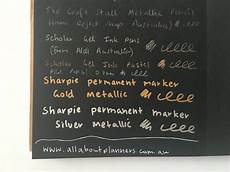 The Craft Stall Metallic Pencil
(From Reject Shop Australia)
Scholar Gel Ink Pens
(from Aldi Australia)
Scholar Gel Ink Pastel
Sharpie permanent marker
Gold Metallic
Sharpie permanent marker
Silver Metallic
www.allaboutplanners.com.au